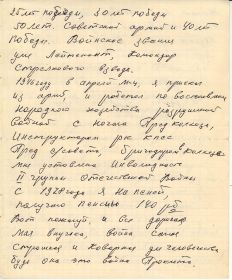 25 лет победы, 30 лет победы
50 лет. Советской армии и 40 лет
Победы. Воинское звание
Лейтенант Командир
Стрелкового взвода.
в апреле м-ц, я пришел
из армии, и работал по восстановл
народного хозяйства
с начала Пред колхоза,
Инструктора рк КПСС
Пред с/совета, бригадиром колхоза
мне установлена Инвалидность
II группы Отечественной Войны
С 1978 года я на пенсии
получаю пенсию 140 руб
Вот пожалуй, и все дорогая
Моя внучка, война самая
страшная и коварная для человечества
будь она эта война Проклята